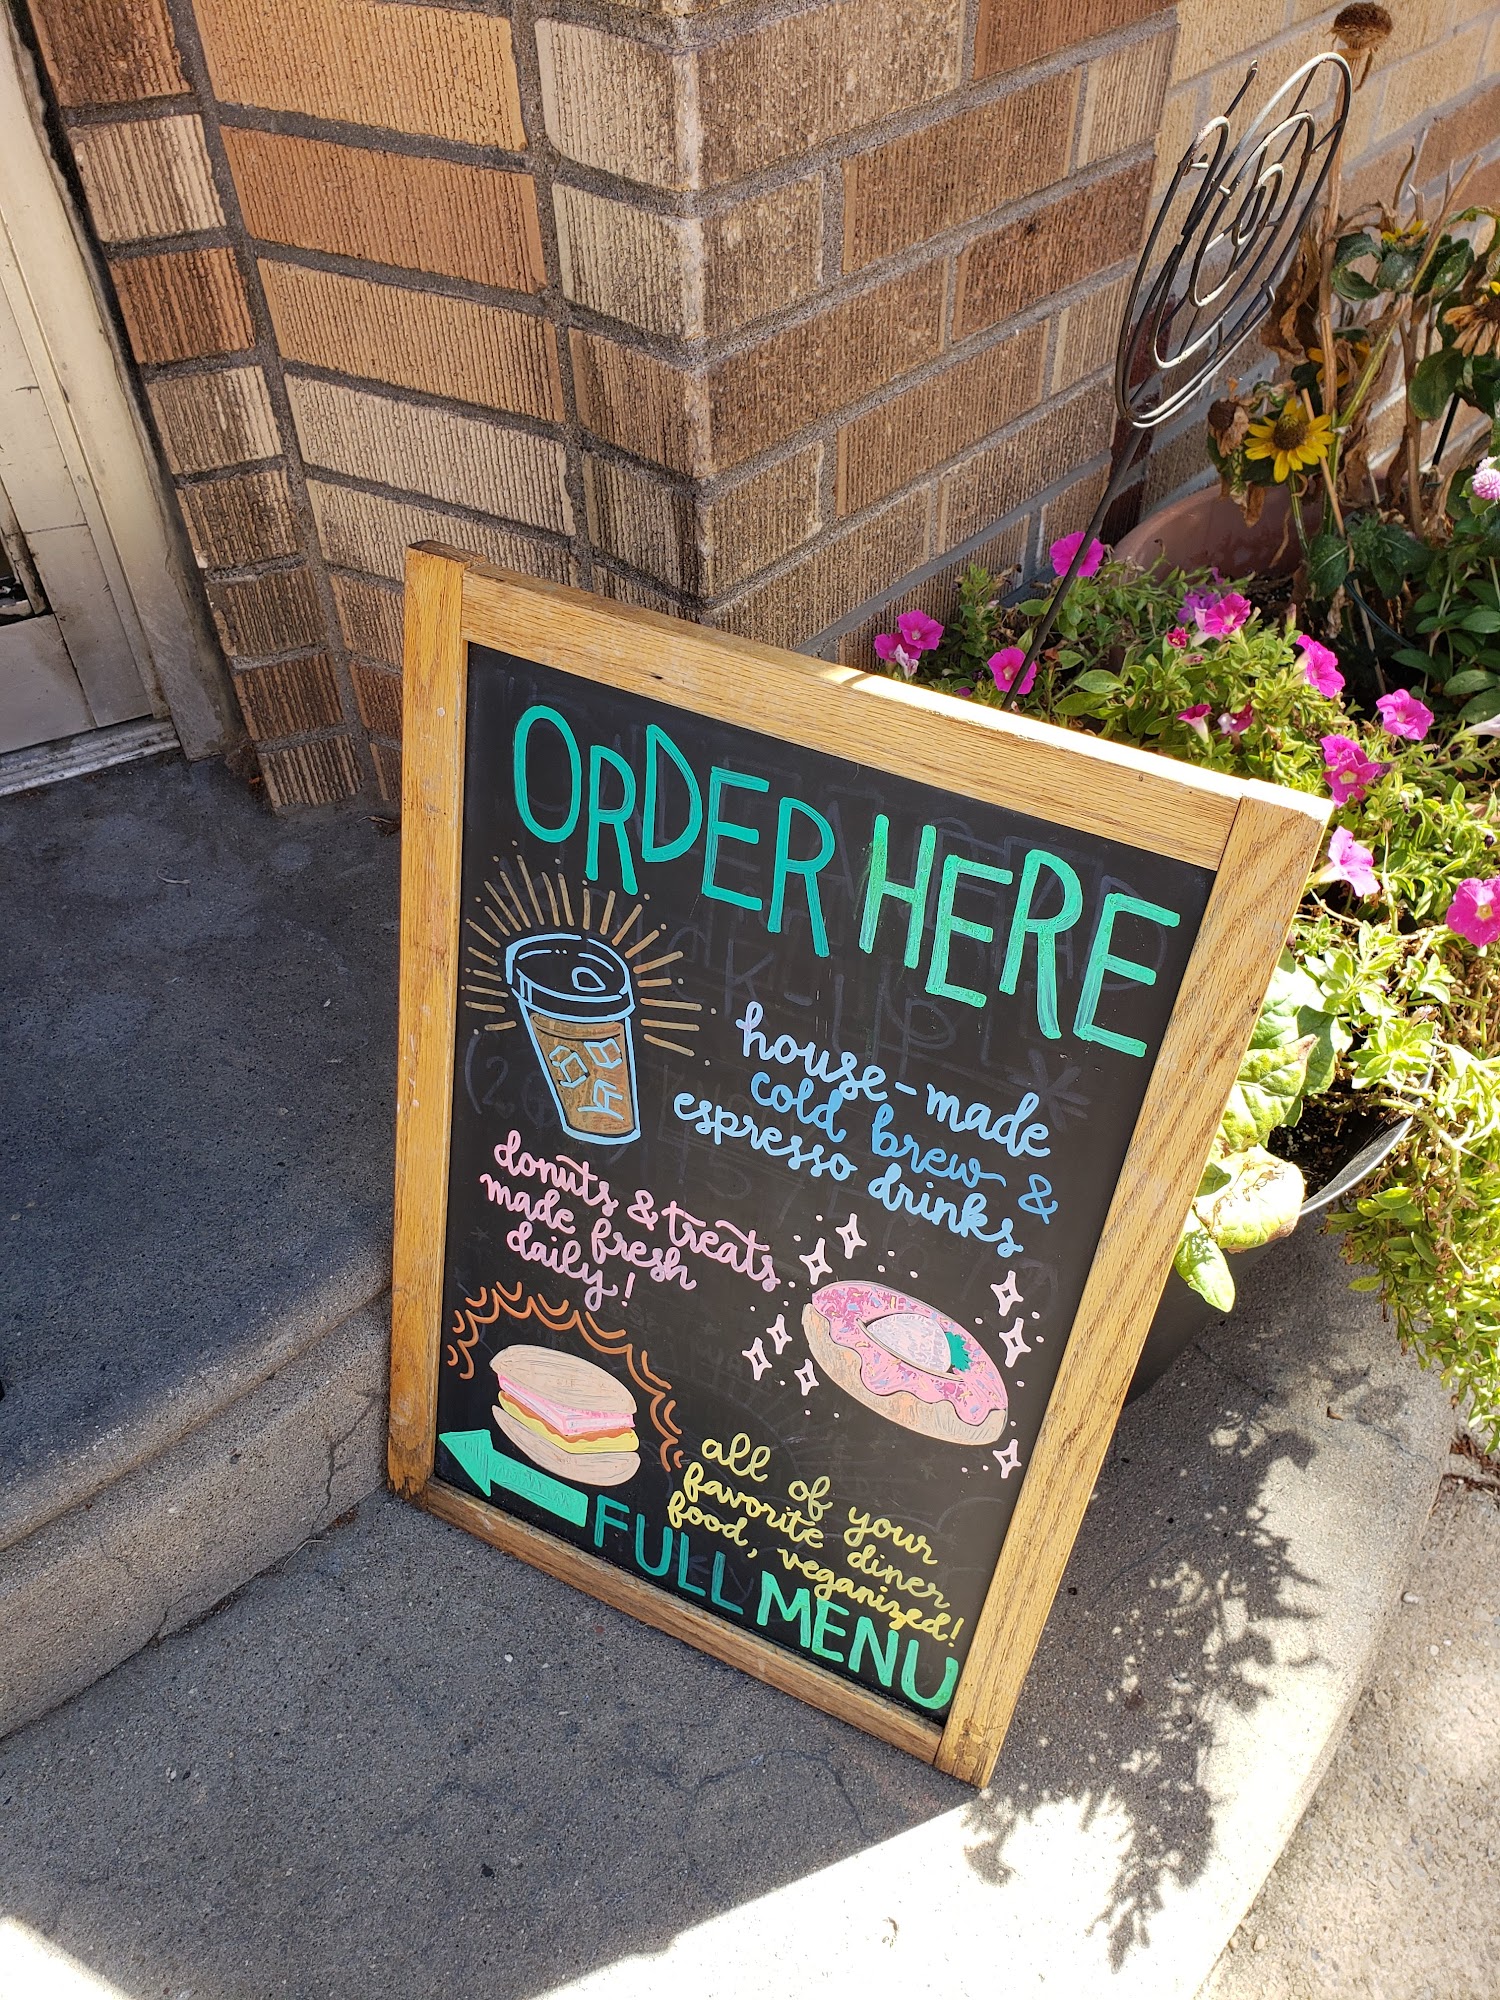 ORDER HERE
house-made
cold brew &
espresso drinks
donuts & treats
made fresh
daily!
all of your
favorite diner
food, veganized!
FULL MENU